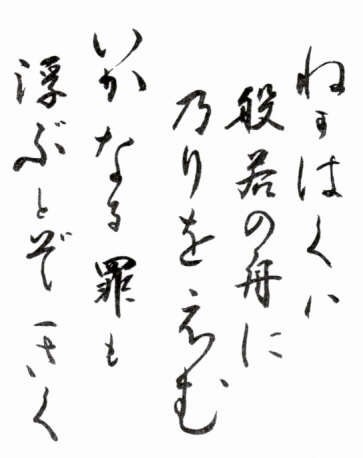 ねがはくハ
般若の舟に
乃りをえむ
いかなる罪も
浮ぶとぞきく